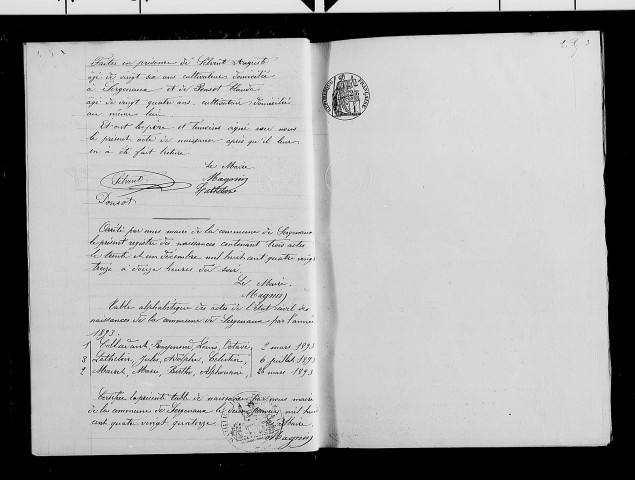 Faites en présence de Pélerut Auguste
âgé de vingt six ans cultivateur domicilié
à Sergenaux et de Ponsot Claude
âgé de vingt quatre ans cultivateur domicilié
au même lieu.
Et ont les père et témoins signé avec nous
le présent acte de naissance après qu'il leur
en a été fait lecture.
Le Maire
Magnin
Ponsot
Arrêté par nous maire de la commune de Sergenaux
le présent registre des naissances contenant trois actes
le trente et un décembre mil huit cent quatre vingt
treize à douze heures du soir.
Le Maire.
Magnin
Table alphabétique des actes de l'état civil des
naissances de la commune de Sergenaux par l'année
1893.
1 Raymond, Louis, Octave, 2 mars 1893
3 Jules, Adolphe, Célestin, 6 juillet 1893
2 Marie, Berthe, Alphonsine, 28 mars 1893
Certifiée la présente table de naissance par nous maire
de la commune de Sergenaux le deux janvier mil huit
cent quatre vingt quatorze.
Le Maire.
Magnin